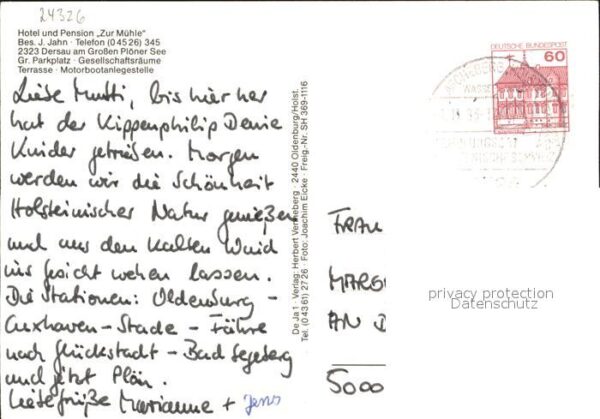 24326
Hotel und Pension „Zur Mühle"
Bes. J. Jahn · Telefon (0 45 26) 345
2323 Dersau am Großen Plöner See
Gr. Parkplatz · Gesellschaftsräume
Terrasse · Motorbootanlegestelle
Liebe Mutti, bis hier her
hat der Kippenphilip Deine
Kinder getrieben. Morgen
werden wir die Schönheit
Holsteinischer Natur genießen
und uns den kalten Wind
ins Gesicht wehen lassen.
Die Stationen: Oldenburg -
Cuxhaven - Stade - Fähre
nach Glückstadt - Bad Segeberg
und jetzt Plön.
Liebe Grüße Marianne + Jens
De Ja 1 · Verlag: Herbert Venneberg · 2440 Oldenburg/Holst.
Tel. (0 43 61) 27 26 · Foto: Joachim Eicke · Freig.-Nr. SH 369-1116
DEUTSCHE BUNDESPOST
60
FRAU
MARG
AN D
5000
privacy protection
Datenschutz